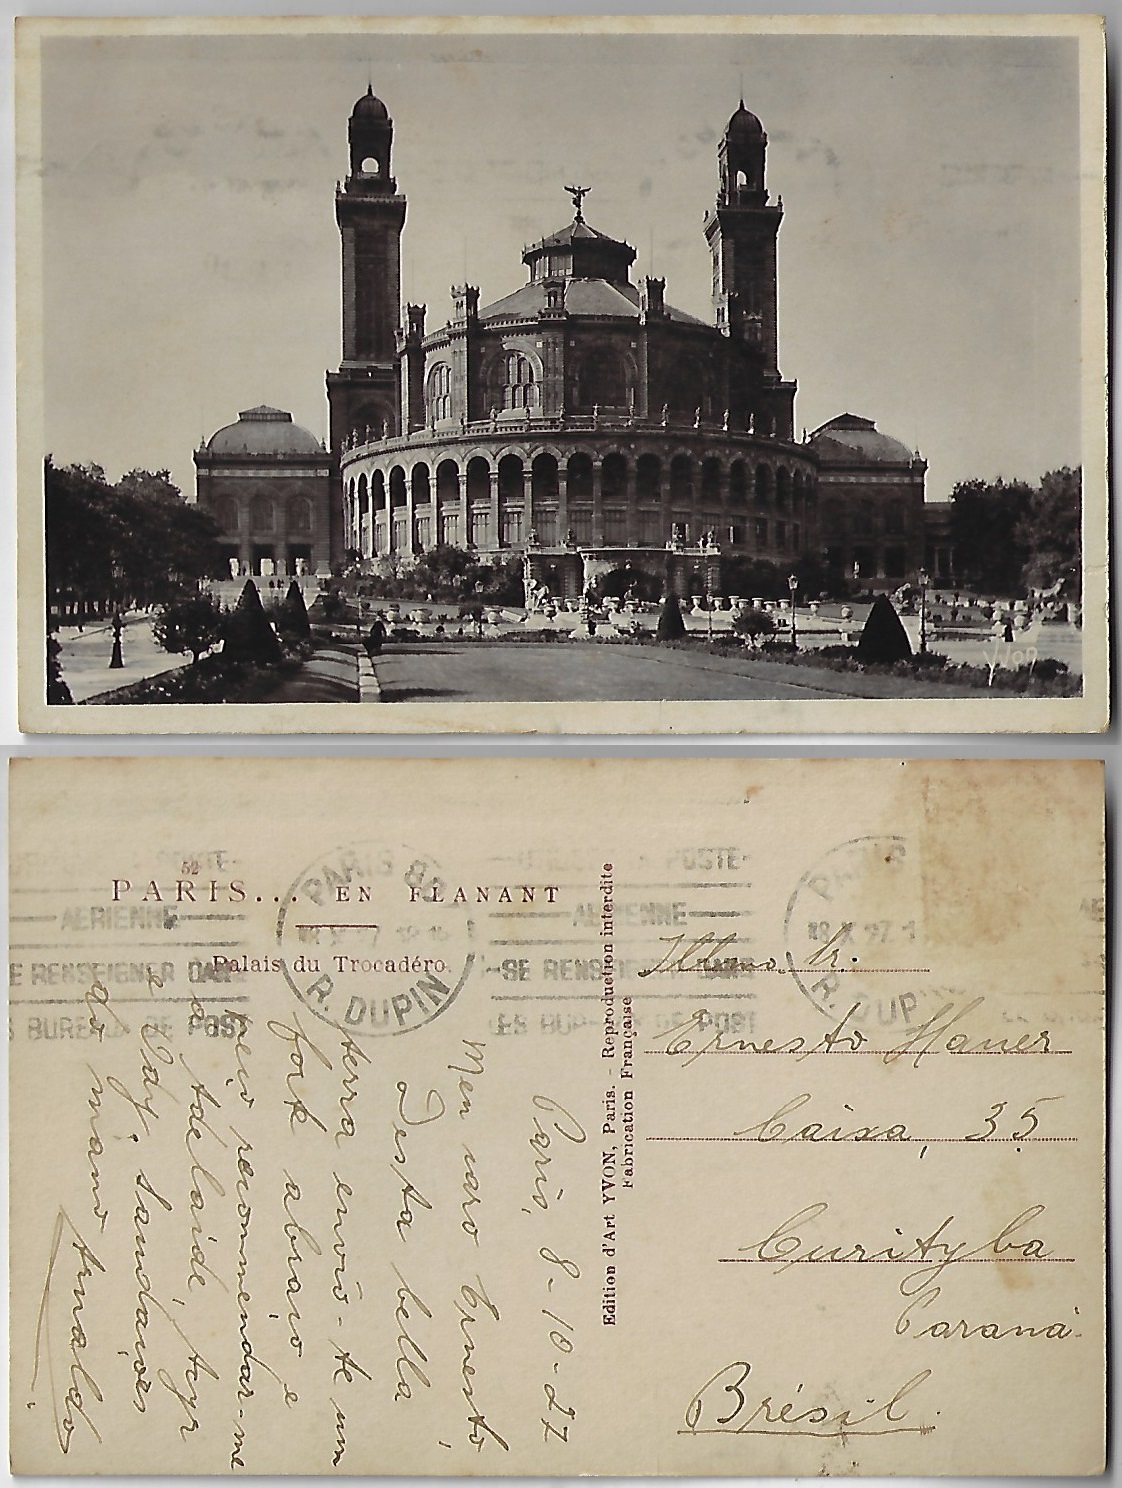 YVON
52
PARIS... EN FLANANT
Palais du Trocadéro.
PARIS
8 X 27
R. DUPIN
POSTE-
AERIENNE
SE RENSEIGNER DANS
LES BUREAUX DE POSTE
Edition d'Art YVON, Paris. - Reproduction interdite
Fabrication Française
Illmo. Sr.
Ernesto Hauer
Caixa, 35
Curityba
Paraná.
Brésil.
Paris, 8-10-27
Meu caro Ernesto,
Desta bella
terra envio-te um
forte abraço e
peço recommendar-me
a Adelaide, Acyr
e Edy. Saudações
do mano Arnaldo